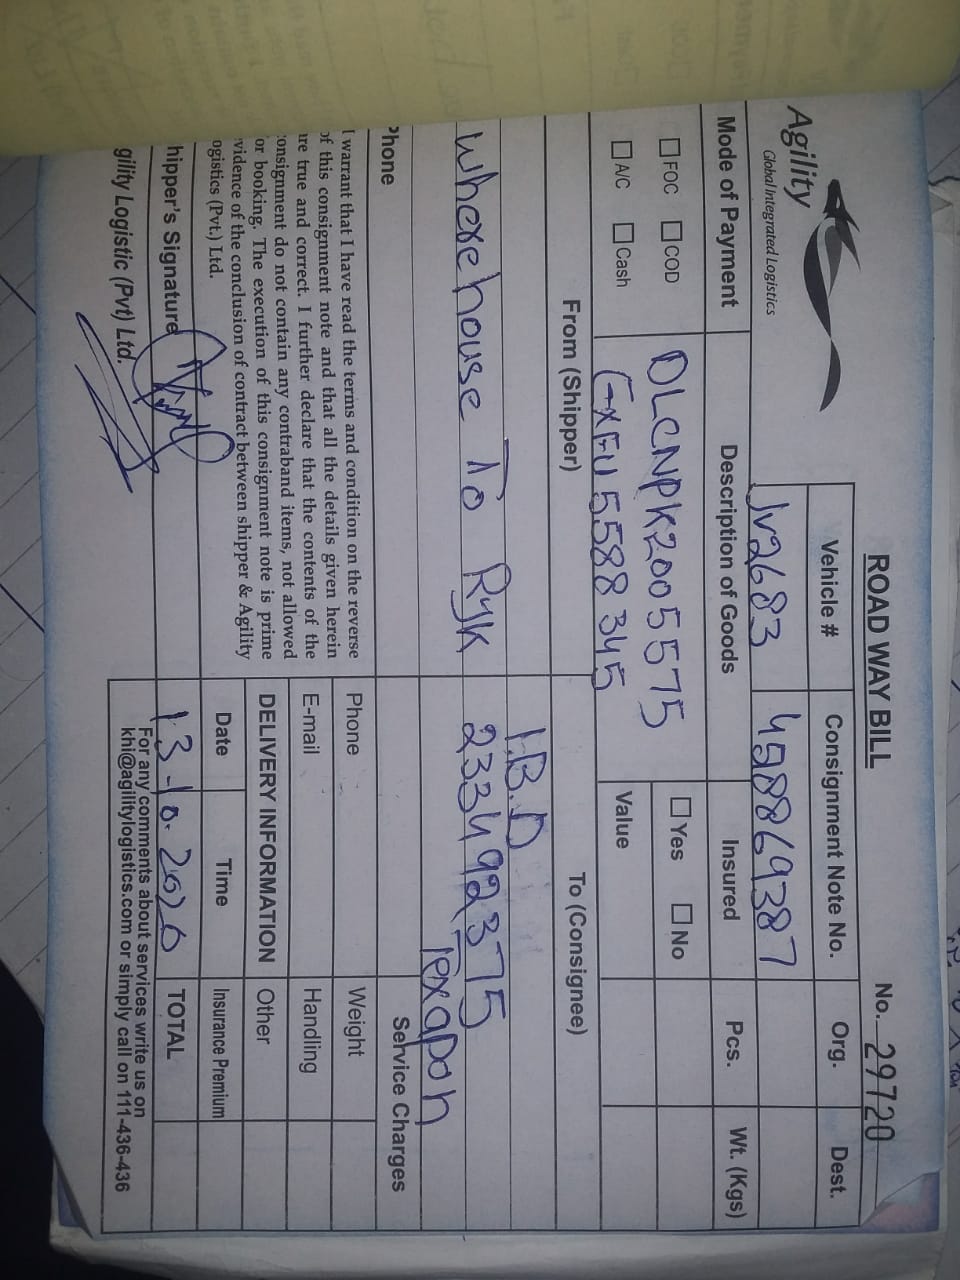 ROAD WAY BILL
No. 29720
Agility
Global Integrated Logistics
Vehicle #
Consignment Note No.
Org.
Dest.
JV2683
428869387
Mode of Payment
Description of Goods
Insured
Pcs.
Wt. (Kgs)
FOC
COD
A/C
Cash
DLCNPK2005575
GXFU 5588345
Yes
No
Value
From (Shipper)
To (Consignee)
wherehouse To RYK
I.B.D
233492375
Texapon
Phone
I warrant that I have read the terms and condition on the reverse
of this consignment note and that all the details given herein
are true and correct. I further declare that the contents of the
consignment do not contain any contraband items, not allowed
or booking. The execution of this consignment note is prime
vidence of the conclusion of contract between shipper & Agility
ogistics (Pvt.) Ltd.
hipper's Signature
gility Logistic (Pvt) Ltd.
Phone
E-mail
DELIVERY INFORMATION
Date
Time
13-10-2020
Service Charges
Weight
Handling
Other
Insurance Premium
TOTAL
For any comments about services write us on
khi@agilitylogistics.com or simply call on 111-436-436